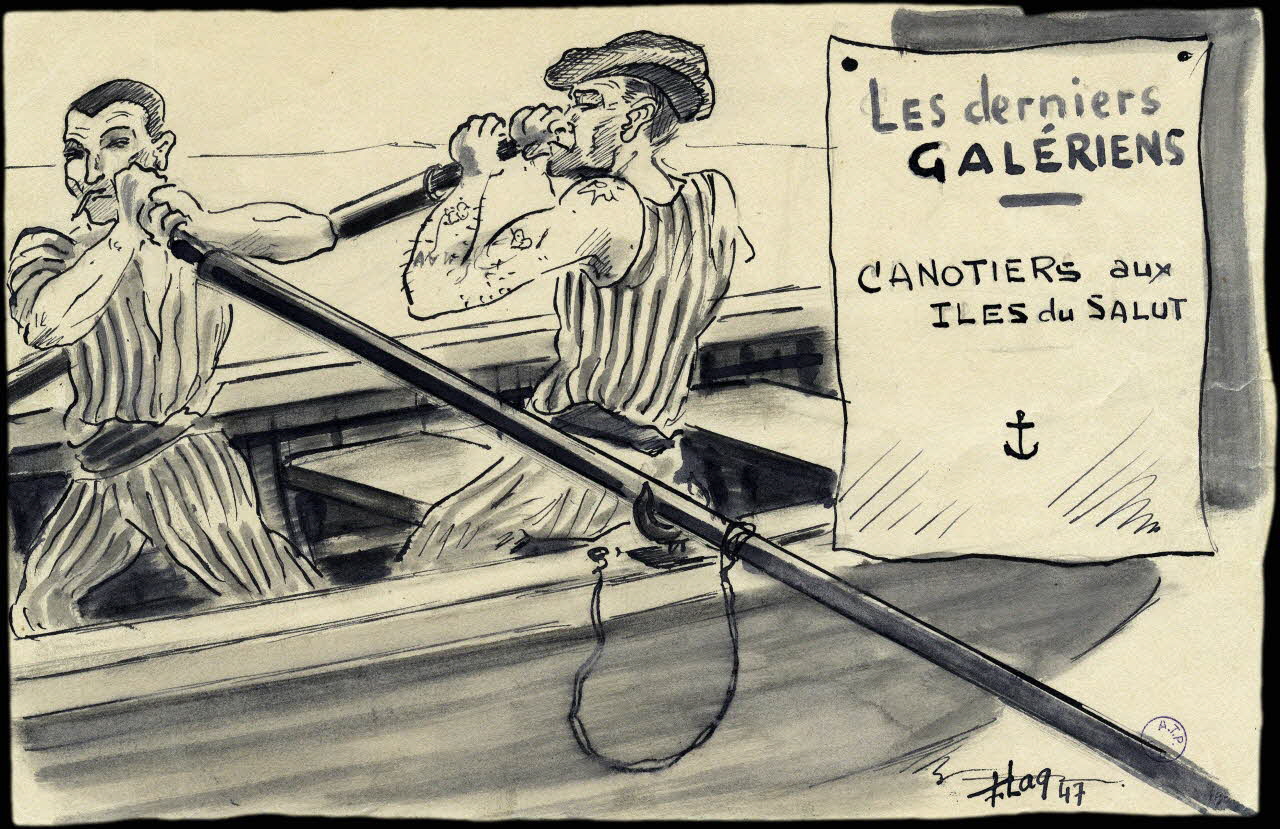 LES derniers
GALÉRIENS
CANOTIERS aux
ILES du SALUT
A.T.P.
F. Lag 47